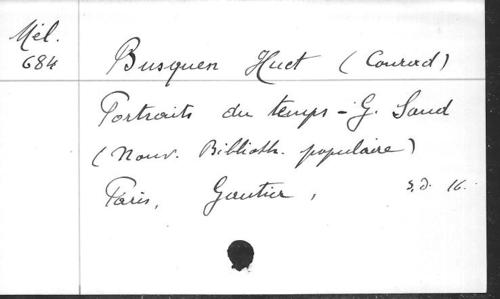 Mél.
684
Busquen Huet (Conrad)
Portraits du temps - G. Sand
(Nouv. Biblioth. populaire)
Paris, Gautier, s.d. 16.